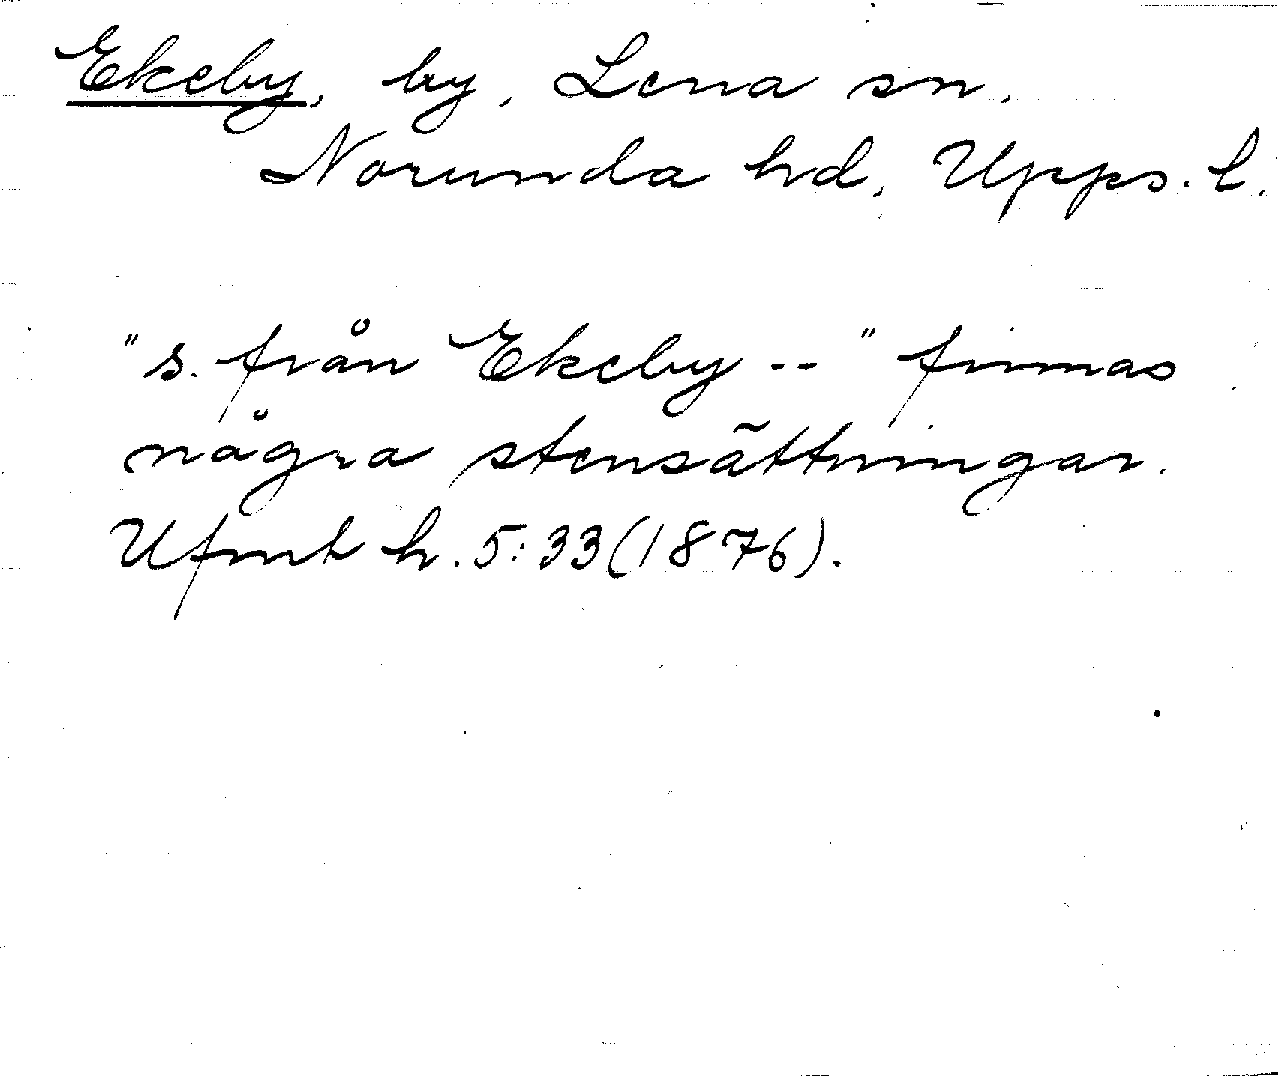 Ekeby, by, Lena sn.
Norunda hd, Upps. l.
"s. från Ekeby --" finnas
några stensättningar.
Ufmt h. 5:33 (1876).